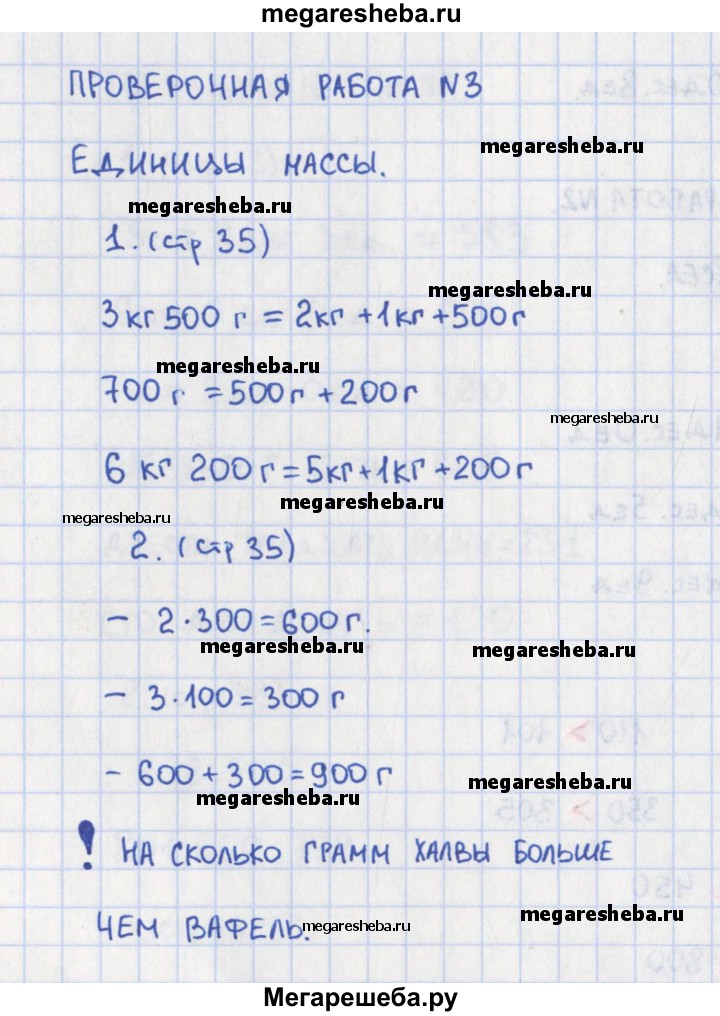 megaresheba.ru
ПРОВЕРОЧНАЯ РАБОТА N3
ЕДИНИЦЫ МАССЫ.
megaresheba.ru
megaresheba.ru
1. (стр 35)
megaresheba.ru
3 кг 500 г = 2кг + 1кг + 500г
megaresheba.ru
700 г = 500г + 200г
megaresheba.ru
6 кг 200г = 5кг + 1кг + 200г
megaresheba.ru
megaresheba.ru
2. (стр 35)
- 2 · 300 = 600 г.
megaresheba.ru
megaresheba.ru
- 3 · 100 = 300 г
- 600 + 300 = 900 г
megaresheba.ru
megaresheba.ru
! НА СКОЛЬКО ГРАММ ХАЛВЫ БОЛЬШЕ
ЧЕМ ВАФЕЛЬ.
megaresheba.ru
megaresheba.ru
Мегарешеба.ру